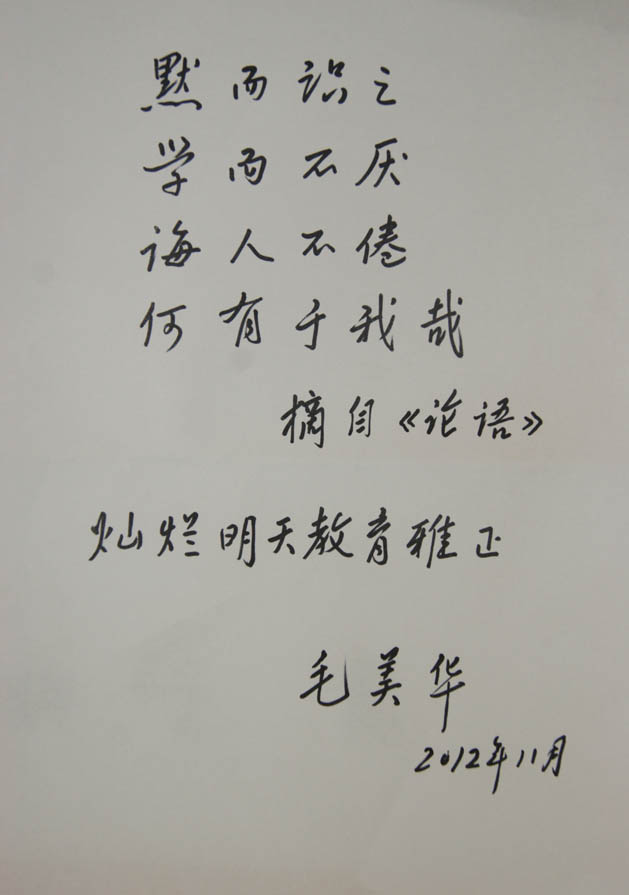 默而识之
学而不厌
诲人不倦
何有于我哉
摘自《论语》
灿烂明天教育雅正
毛美华
2012年11月